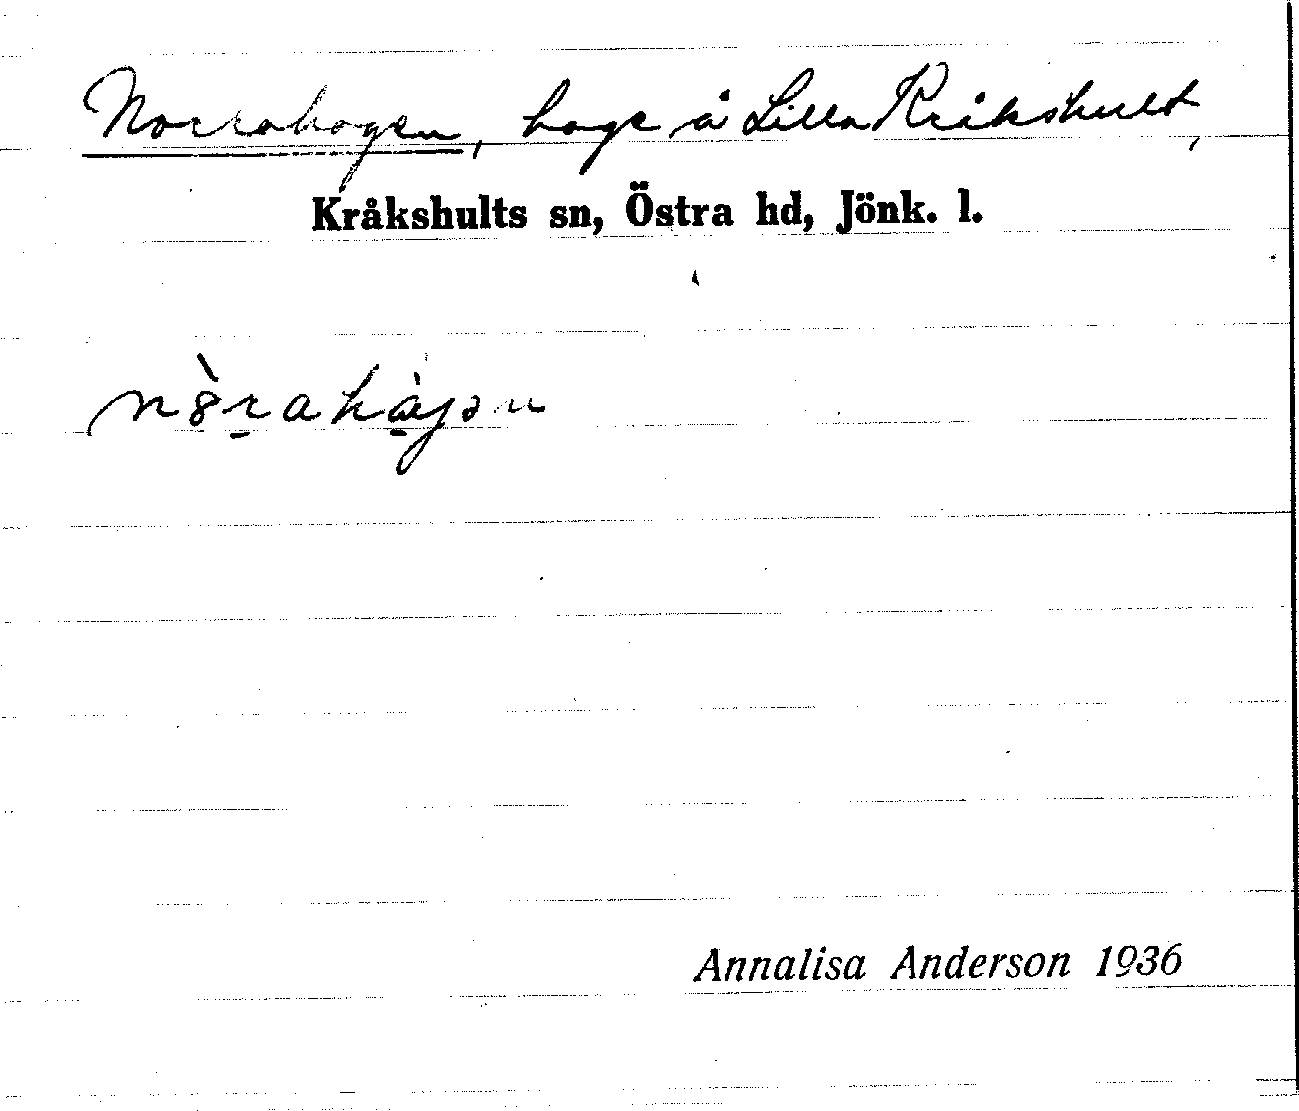 Norrahagen, hage å Lilla Kråkshult,
Kråkshults sn, Östra hd, Jönk. l.
n8̀rahàgən
Annalisa Anderson 1936